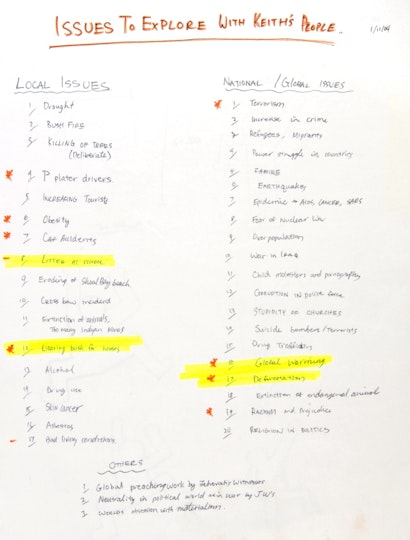 ISSUES TO EXPLORE WITH KEITH'S PEOPLE.
1/11/04
LOCAL ISSUES
1 Drought
2 BUSH FIRE
3 KILLING OF TREES
(Deliberate)
4 P plater drivers.
5 INCREASING Tourists
6 Obesity
7 CAR Accidents
8 LITTER
9 Eroding of Shoal Bay beach
10 CROSS bow incident
11 Extinction of animals,
Too many Indian
12 Clearing bush for houses
Alcohol
Drug use
Skin cancer
Asbestos
Bad living conditions
NATIONAL / GLOBAL ISSUES
1 Terrorism
2 Increase in crime
3 Refugees, Migrants
4 Power struggle in countries
5 FAMINE
6 EARTHQUAKES
7 Epidemic AIDS, CANCER, SARS
8 Fear of Nuclear War
9 Over population
10 War in IRAQ
11 Child molesters and pornography
12 CORRUPTION IN POLICE force
13 STUPIDITY OF CHURCHES
14 Suicide bombers / terrorists
15 Drug Traffickers
16 Global warming
17 Deforestation
18 Extinction of endangered animals
19 RACISM and Prejudice
20 RELIGION IN POLITICS
OTHERS
1 Global preaching work by Jehovah's Witnesses
2 Neutrality in political world and in war by J.W's
3 World's obsession with materialism.